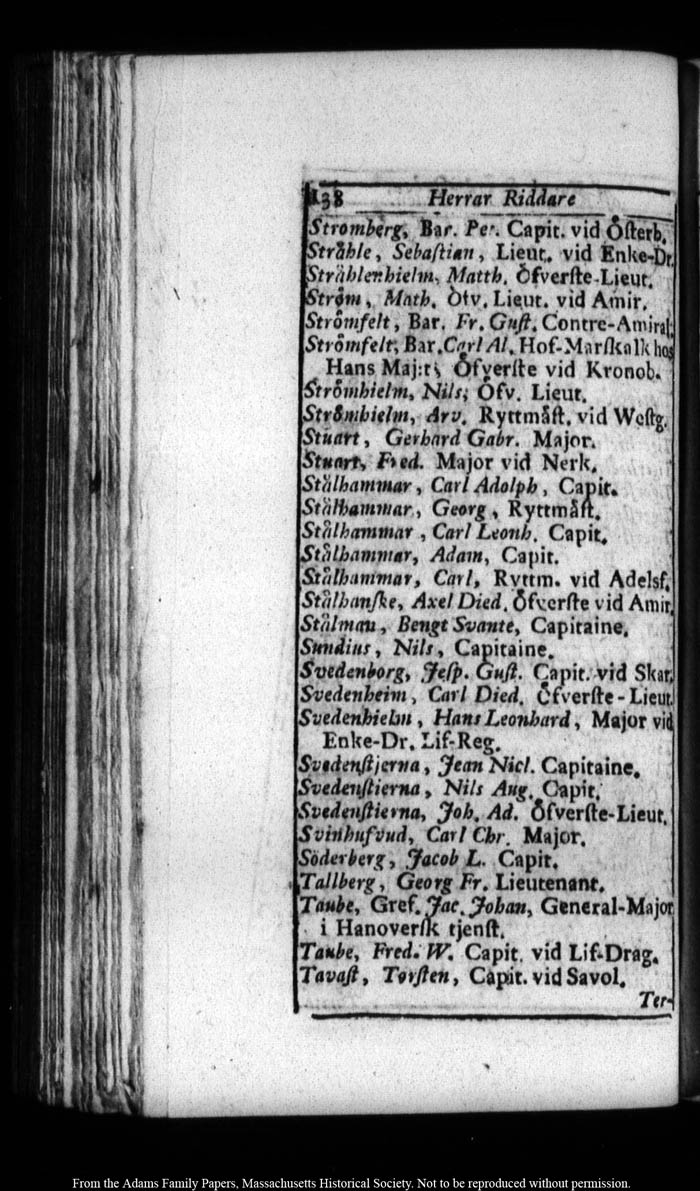 138 Herrar Riddare
Stromberg, Bar. Per. Capit. vid Öſterb.
Stråhle, Sebaſtian, Lieut. vid Enke-Dr.
Strählenhielm, Matth. Öfverſte-Lieut.
Ström, Math. Öfv. Lieut. vid Amir.
Strömfelt, Bar. Fr. Guſt. Contre-Amiral;
Strömfelt, Bar. Carl Al. Hof-Marſkalk hos
Hans Maj:t; Öfverſte vid Kronob.
Strömhielm, Nils; Öfv. Lieut.
Strömhielm, Arv. Ryttmåſt. vid Weſtg.
Stuart, Gerhard Gabr. Major.
Stuart, Fred. Major vid Nerk.
Stålhammar, Carl Adolph, Capit.
Stålhammar, Georg, Ryttmåſt.
Stålhammar, Carl Leonh. Capit.
Stålhammar, Adam, Capit.
Stålhammar, Carl, Ryttm. vid Adelsf.
Stålhanſke, Axel Died. Öfverſte vid Amir.
Stålman, Bengt Svante, Capitaine.
Sundius, Nils, Capitaine.
Svedenborg, Jeſp. Guſt. Capit. vid Skar.
Svedenheim, Carl Died. Öfverſte-Lieut.
Svedenhielm, Hans Leonhard, Major vid
Enke-Dr. Lif-Reg.
Svedenſtjerna, Jean Nicl. Capitaine.
Svedenſtierna, Nils Aug. Capit.
Svedenſtierna, Joh. Ad. Öfverſte-Lieut.
Svinhufvud, Carl Chr. Major.
Söderberg, Jacob L. Capit.
Tallberg, Georg Fr. Lieutenant.
Taube, Gref. Jac. Johan, General-Major
i Hanoverſk tjenſt.
Taube, Fred. W. Capit. vid Lif-Drag.
Tavaſt, Torſten, Capit. vid Savol.
Ter-
From the Adams Family Papers, Massachusetts Historical Society. Not to be reproduced without permission.